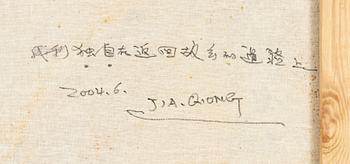 我刚独自在返回故乡的道路上
2004.6.
JIA.QIONG